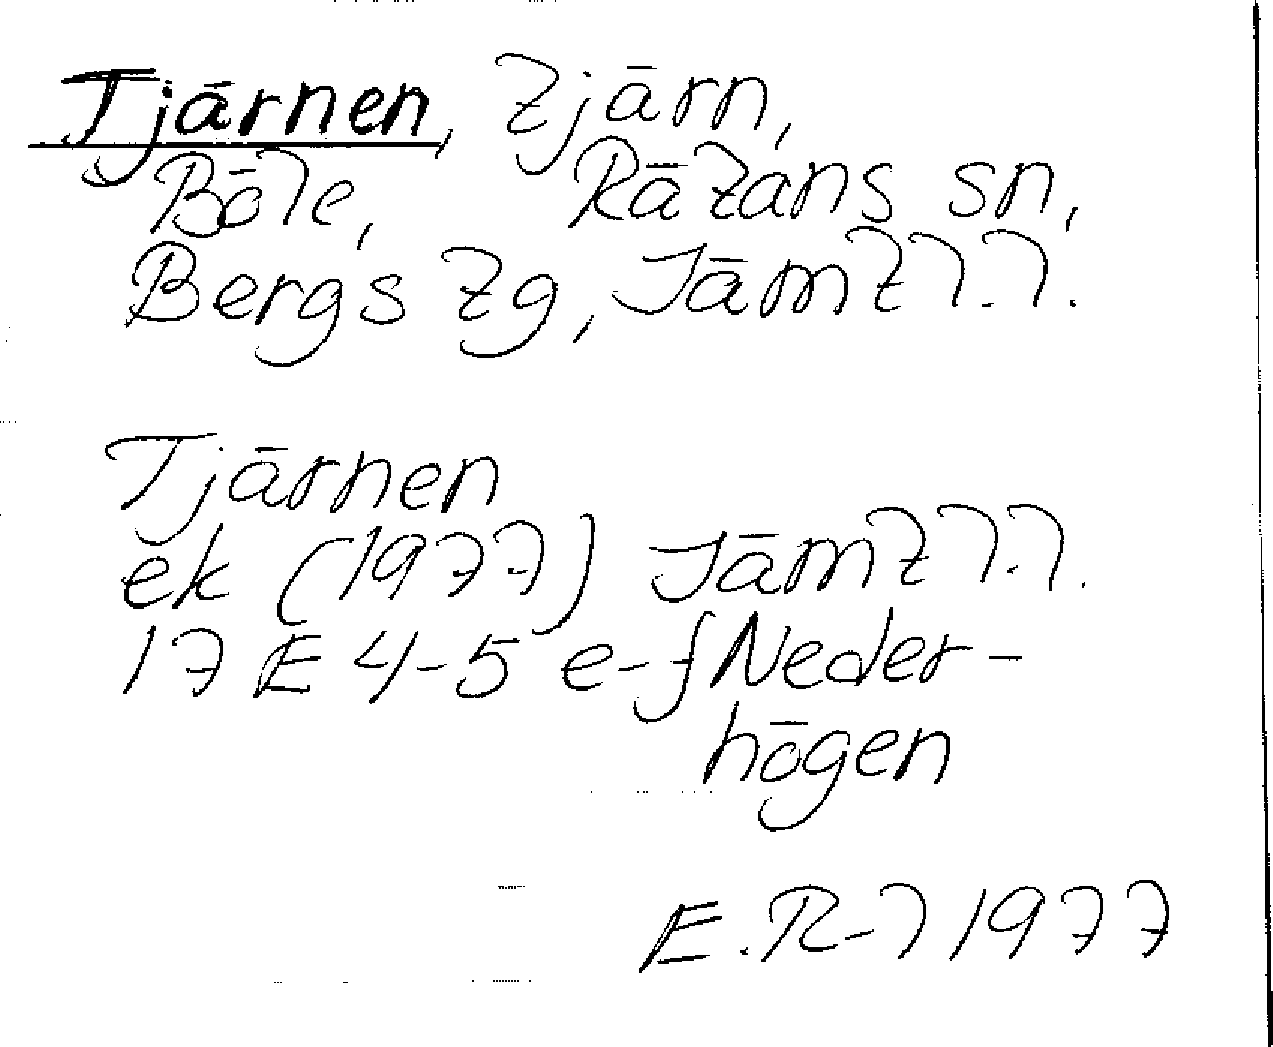 Tjärnen, tjärn,
Böle, Rätans sn,
Bergs tg, Jämtl.l.
Tjärnen
ek (1977) Jämtl.l.
17 E 4-5 e-f Neder-
högen
E.R-l 1977